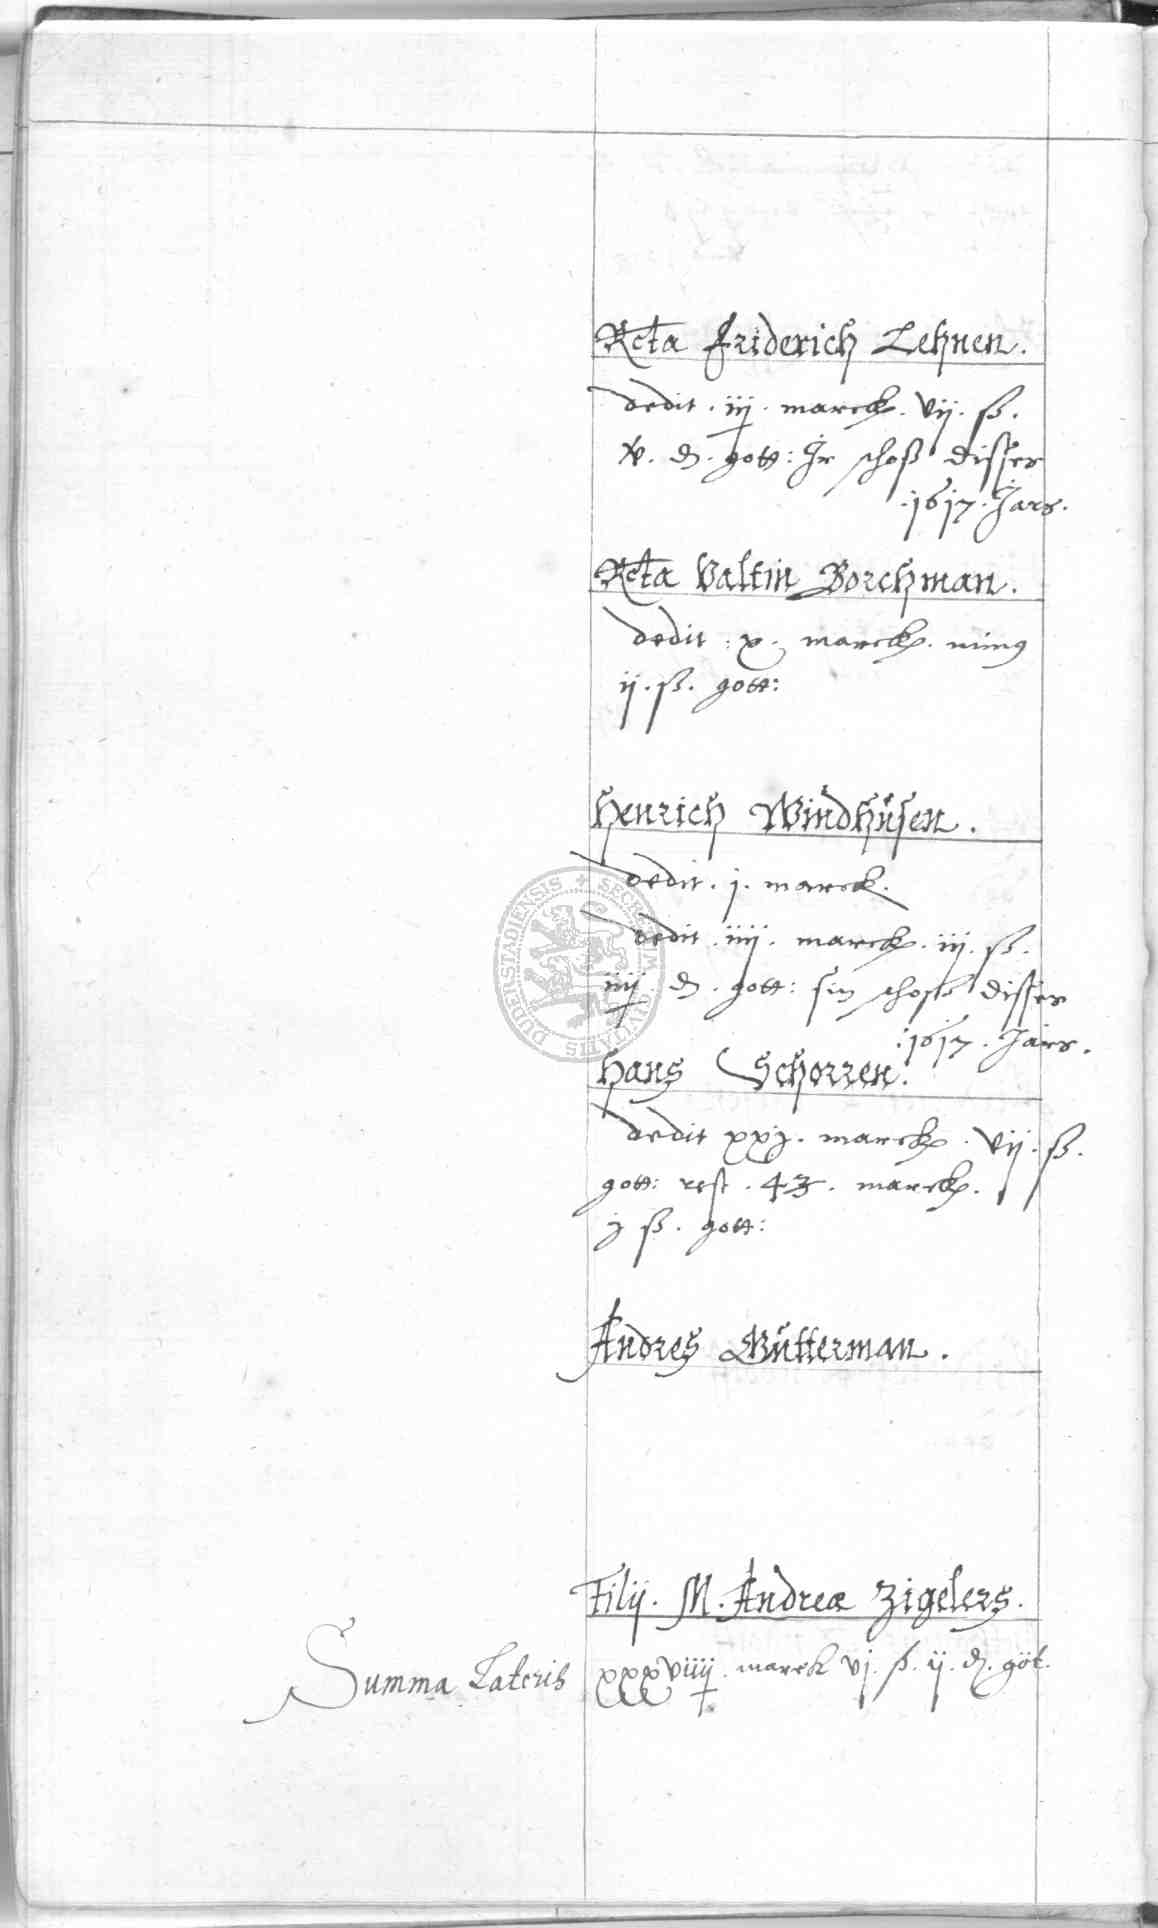 Rcta Friderich Lehnen.
dedit . iij . marck . vij . ß .
v . d . gott : Ir schoß disser
. 1617 . Jars .
Rcta Valtin Borchman .
dedit . x . marck . minus
ij . ß . gott :
Henrich Windhüsen .
dedit . j . marck .
dedit . iiij . marck . iij . ß .
iiij . d . gott : sin schoß disser
. 1617 . Jars .
Hans Schorren .
dedit xxj . marck . vij . ß .
gott : rest . 43 . marck .
j ß . gott :
Andres Gütterman .
Filij . M . Andreæ Zigelers .
Summa Lateris xxxviiij . marck vj . ß . ij . d . göt .
SECRETUM CIVITATIS DUDERSTADIENSIS